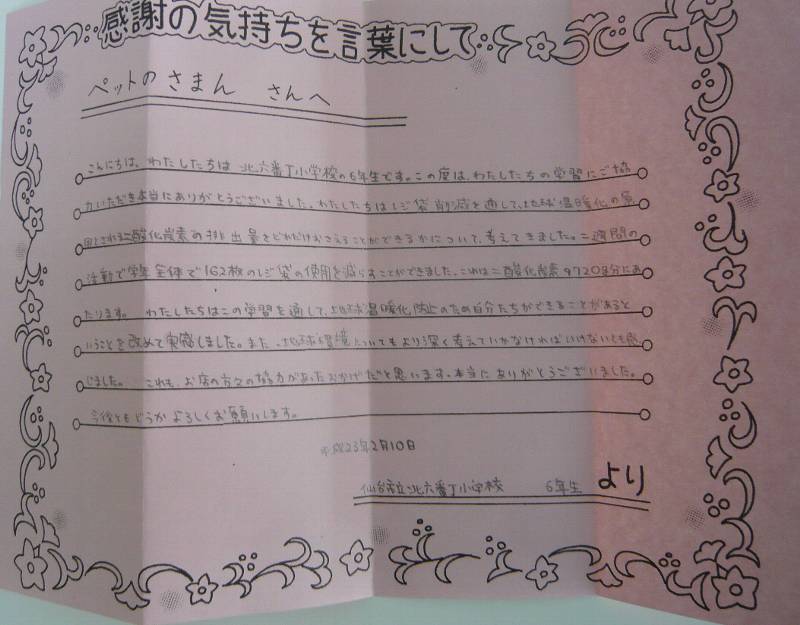 感謝の気持ちを言葉にして
ペットのさまん さんへ
こんにちは。わたしたちは北六番丁小学校の6年生です。この度は、わたしたちの学習にご協
力いただき本当にありがとうございました。わたしたちはレジ袋削減を通して、地球温暖化の原
因とされる二酸化炭素の排出量をどれだけおさえることができるかについて、考えてきました。二週間の
活動で学年全体で162枚のレジ袋の使用を減らすことができました。これは二酸化炭素9720g分にあ
たります。わたしたちはこの学習を通して、地球温暖化防止のため自分たちができることがあると
いうことを改めて実感しました。また、地球環境についてもより深く考えていかなければいけないとも感
じました。これも、お店の方々の協力があったおかげだと思います。本当にありがとうございました。
今後ともどうかよろしくお願いします。
平成23年2月10日
仙台市立北六番丁小学校 6年生 より